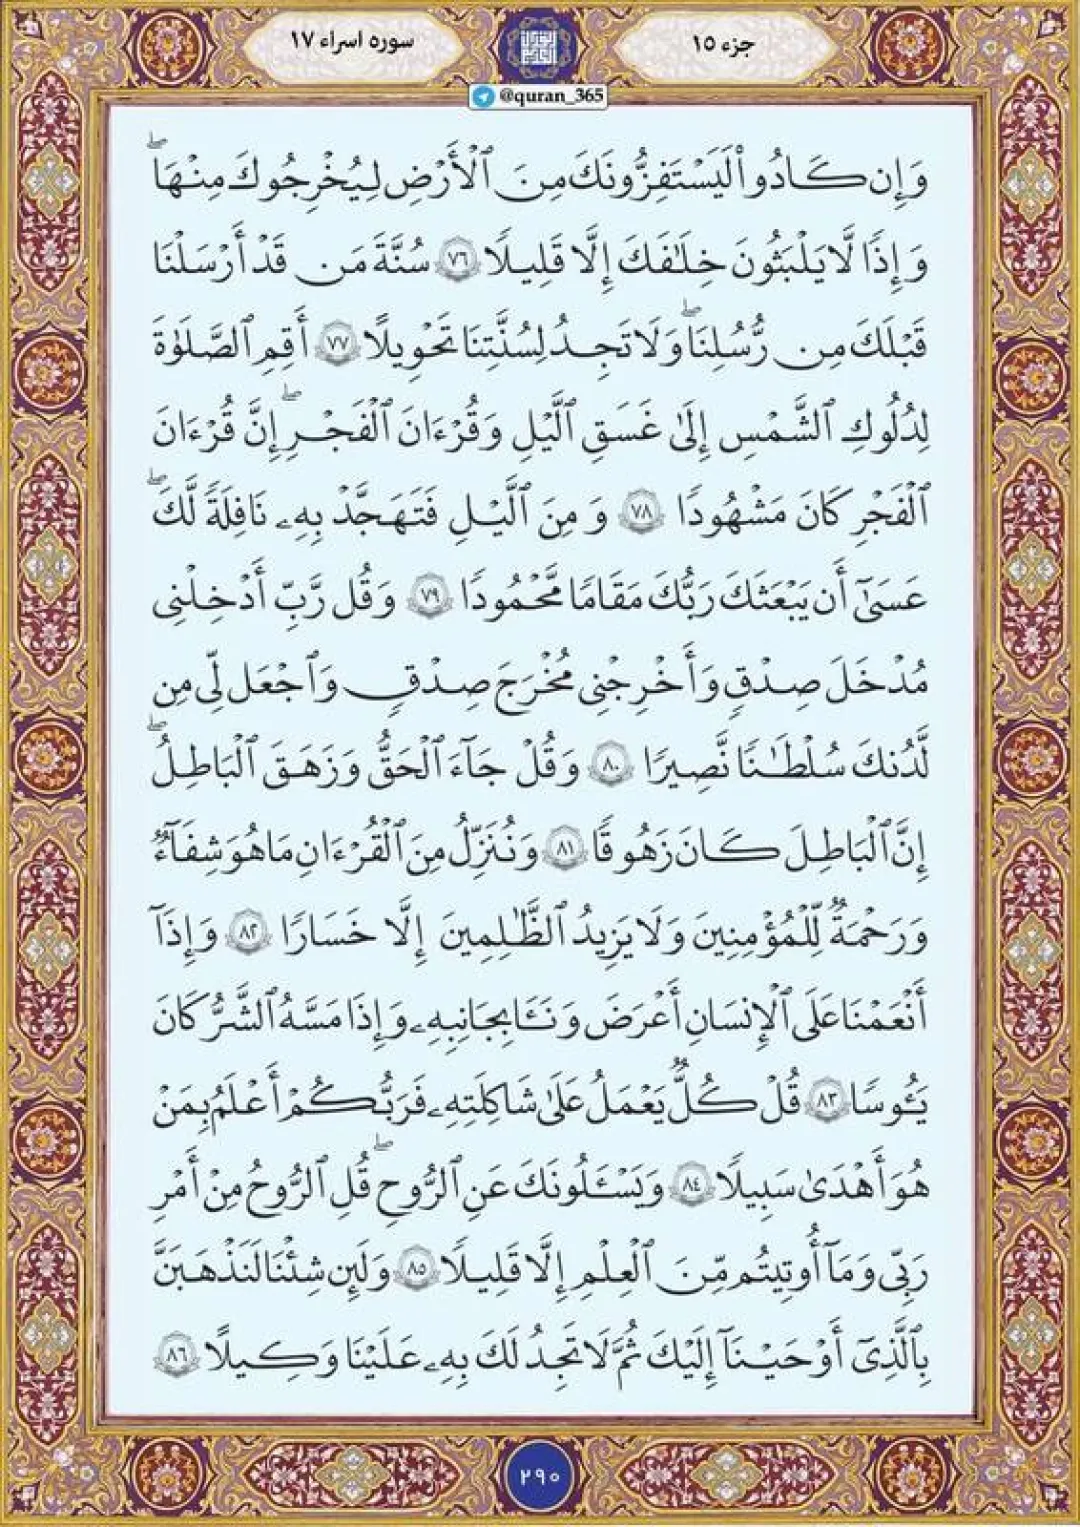 جزء ۱۵
سوره اسراء ۱۷
@quran_365
وَإِن كَادُوا۟ لَيَسْتَفِزُّونَكَ مِنَ ٱلْأَرْضِ لِيُخْرِجُوكَ مِنْهَا ۖ
وَإِذًا لَّا يَلْبَثُونَ خِلَـٰفَكَ إِلَّا قَلِيلًا ٧٦ سُنَّةَ مَن قَدْ أَرْسَلْنَا
قَبْلَكَ مِن رُّسُلِنَا ۖ وَلَا تَجِدُ لِسُنَّتِنَا تَحْوِيلًا ٧٧ أَقِمِ ٱلصَّلَوٰةَ
لِدُلُوكِ ٱلشَّمْسِ إِلَىٰ غَسَقِ ٱلَّيْلِ وَقُرْءَانَ ٱلْفَجْرِ ۖ إِنَّ قُرْءَانَ
ٱلْفَجْرِ كَانَ مَشْهُودًا ٧٨ وَمِنَ ٱلَّيْلِ فَتَهَجَّدْ بِهِۦ نَافِلَةً لَّكَ ۖ
عَسَىٰٓ أَن يَبْعَثَكَ رَبُّكَ مَقَامًا مَّحْمُودًا ٧٩ وَقُل رَّبِّ أَدْخِلْنِى
مُدْخَلَ صِدْقٍ وَأَخْرِجْنِى مُخْرَجَ صِدْقٍ وَٱجْعَل لِّى مِن
لَّدُنكَ سُلْطَـٰنًا نَّصِيرًا ٨٠ وَقُلْ جَآءَ ٱلْحَقُّ وَزَهَقَ ٱلْبَاطِلُ ۖ
إِنَّ ٱلْبَاطِلَ كَانَ زَهُوقًا ٨١ وَنُنَزِّلُ مِنَ ٱلْقُرْءَانِ مَا هُوَ شِفَآءٌ
وَرَحْمَةٌ لِّلْمُؤْمِنِينَ وَلَا يَزِيدُ ٱلظَّـٰلِمِينَ إِلَّا خَسَارًا ٨٢ وَإِذَآ
أَنْعَمْنَا عَلَى ٱلْإِنسَانِ أَعْرَضَ وَنَـَٔا بِجَانِبِهِۦ وَإِذَا مَسَّهُ ٱلشَّرُّ كَانَ
يَـُٔوسًا ٨٣ قُلْ كُلٌّ يَعْمَلُ عَلَىٰ شَاكِلَتِهِۦ فَرَبُّكُمْ أَعْلَمُ بِمَنْ
هُوَ أَهْدَىٰ سَبِيلًا ٨٤ وَيَسْـَٔلُونَكَ عَنِ ٱلرُّوحِ ۖ قُلِ ٱلرُّوحُ مِنْ أَمْرِ
رَبِّى وَمَآ أُوتِيتُم مِّنَ ٱلْعِلْمِ إِلَّا قَلِيلًا ٨٥ وَلَئِن شِئْنَا لَنَذْهَبَنَّ
بِٱلَّذِىٓ أَوْحَيْنَآ إِلَيْكَ ثُمَّ لَا تَجِدُ لَكَ بِهِۦ عَلَيْنَا وَكِيلًا ٨٦
۲۹۰